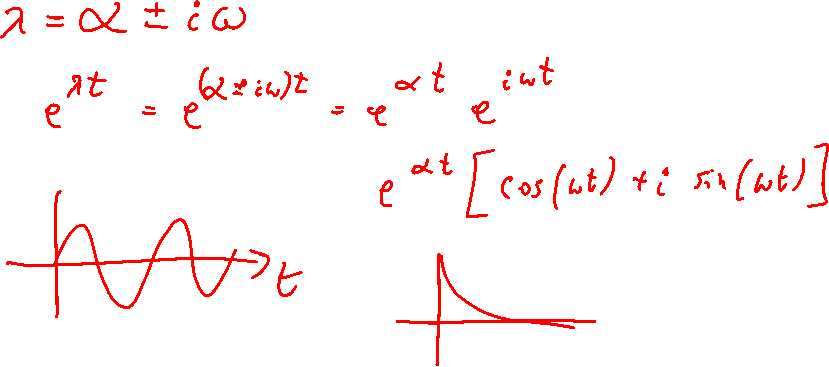 λ = α ± iω
e^{λt} = e^{(α ± iω)t} = e^{αt} e^{iωt}
e^{αt} [cos(ωt) + i sin(ωt)]
t